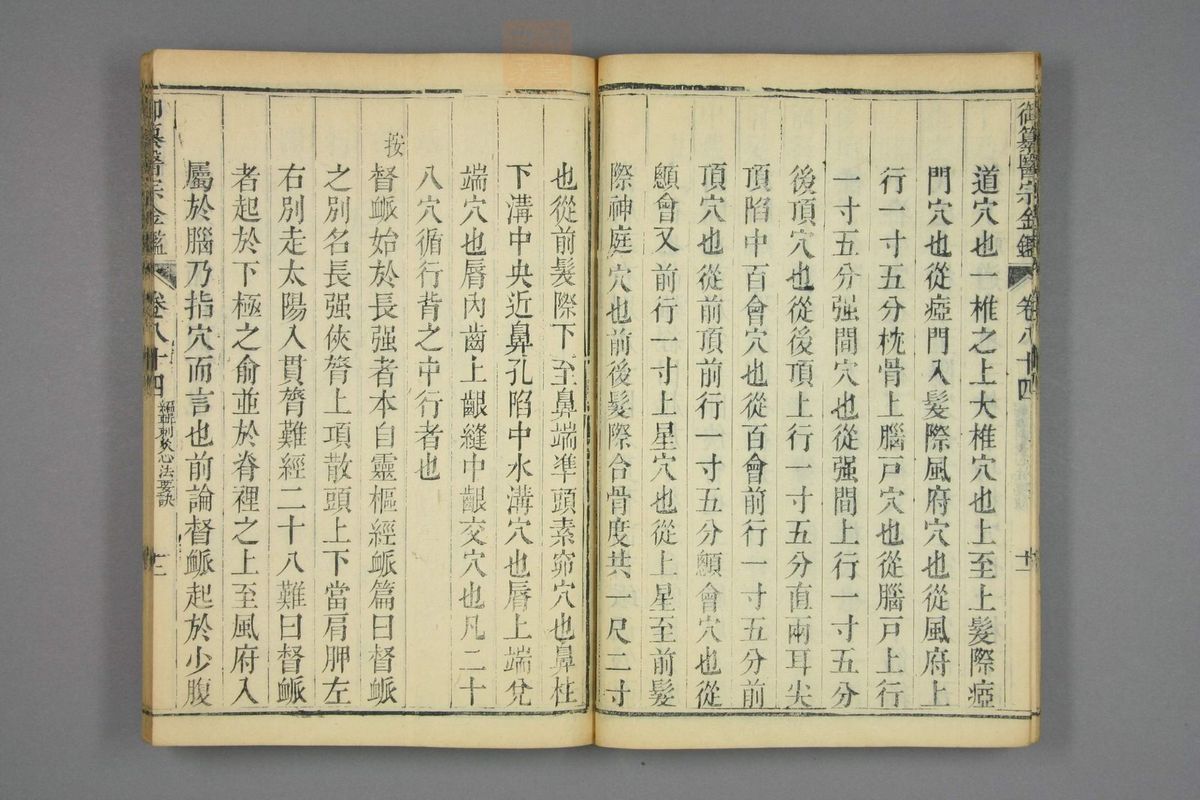 御纂醫宗金鑑
卷八十四
道穴也一椎之上大椎穴也上至上髮際瘂
門穴也從瘂門入髮際風府穴也從風府上
行一寸五分枕骨上腦戸穴也從腦戸上行
一寸五分强間穴也從强間上行一寸五分
後頂穴也從後頂上行一寸五分直兩耳尖
頂陷中百會穴也從百會前行一寸五分前
頂穴也從前頂前行一寸五分顖會穴也從
顖會又前行一寸上星穴也從上星至前髮
際神庭穴也前後髮際合骨度共一尺二寸
也從前髮際下至鼻端準頭素窌穴也鼻柱
下溝中央近鼻孔陷中水溝穴也脣上端兌
端穴也脣內齒上齦縫中齦交穴也凡二十
八穴循行背之中行者也
按
督脈始於長强者本自靈樞經脈篇曰督脈
之別名長强俠膂上項散頭上下當肩胛左
右別走太陽入貫膂難經二十八難曰督脈
者起於下極之俞並於脊裡之上至風府入
屬於腦乃指穴而言也前論督脈起於少腹
御纂醫宗金鑑
卷八十四
編輯刺灸心法要訣